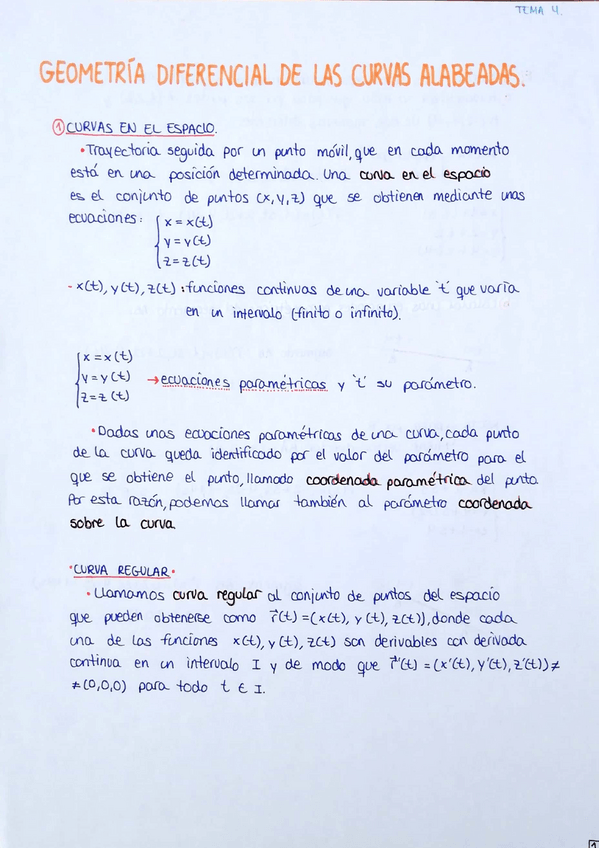 TEMA 4.
GEOMETRÍA DIFERENCIAL DE LAS CURVAS ALABEADAS.
① CURVAS EN EL ESPACIO.
• Trayectoria seguida por un punto móvil, que en cada momento
está en una posición determinada. Una curva en el espacio
es el conjunto de puntos (x,y,z) que se obtienen mediante unas
ecuaciones: { x = x(t)
y = y(t)
z = z(t)
- x(t), y(t), z(t): funciones continuas de una variable 't' que varía
en un intervalo (finito o infinito).
{ x = x(t)
y = y(t) → ecuaciones paramétricas y 't' su parámetro.
z = z(t)
• Dadas unas ecuaciones paramétricas de una curva, cada punto
de la curva queda identificado por el valor del parámetro para el
que se obtiene el punto, llamado coordenada paramétrica del punto.
Por esta razón, podemos llamar también al parámetro coordenada
sobre la curva.
• CURVA REGULAR •
• Llamamos curva regular al conjunto de puntos del espacio
que pueden obtenerse como r⃗(t) = (x(t), y(t), z(t)), donde cada
una de las funciones x(t), y(t), z(t) son derivables con derivada
continua en un intervalo I y de modo que r⃗'(t) = (x'(t), y'(t), z'(t)) ≠
≠ (0,0,0) para todo t ∈ I.
1